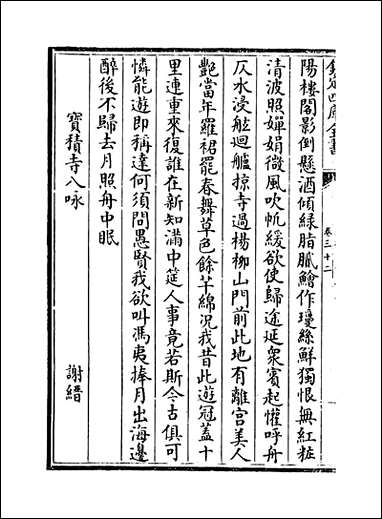 欽定四庫全書
卷三十二
陽樓閣影倒懸酒傾緑脂膩鱠作瓊絲鮮獨恨無紅粧
清波照嬋娟微風吹帆緩欲使歸途延衆賓起懽呼舟
仄水浸舷迴艫掠寺過楊柳山門前此地有離宫美人
艶當年羅裙罷春舞草色餘芊綿況我昔此遊冠蓋十
里連重來復誰在新知滿中筵人事竟若斯今古俱可
憐能遊即稱達何須問愚賢我欲叫馮夷捧月出海邊
醉後不歸去月照舟中眠
寶積寺八咏
謝縉